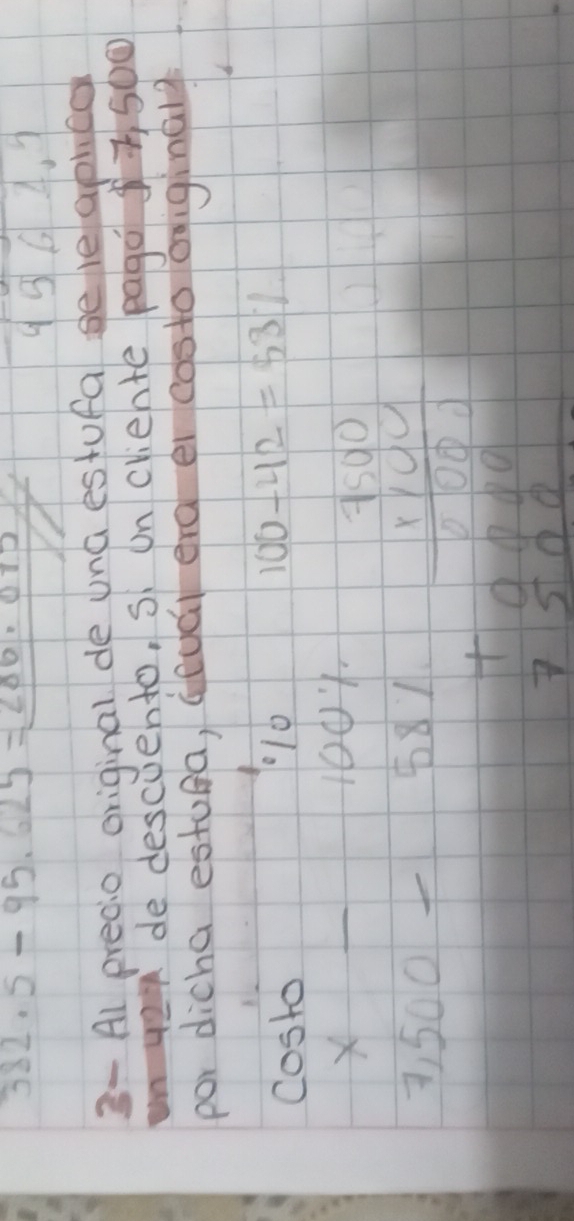 382.5 - 95.625 = 286.875
3- Al precio original de una estufa se le aplica
un 42% de descuento, si un cliente pagó $ 7,500
por dicha estufa, ¿cuál era el costo original?
Costo % 100-42=58%
x - 100% 7500
7,500 - 58% x100
0000
+ 0000
7500